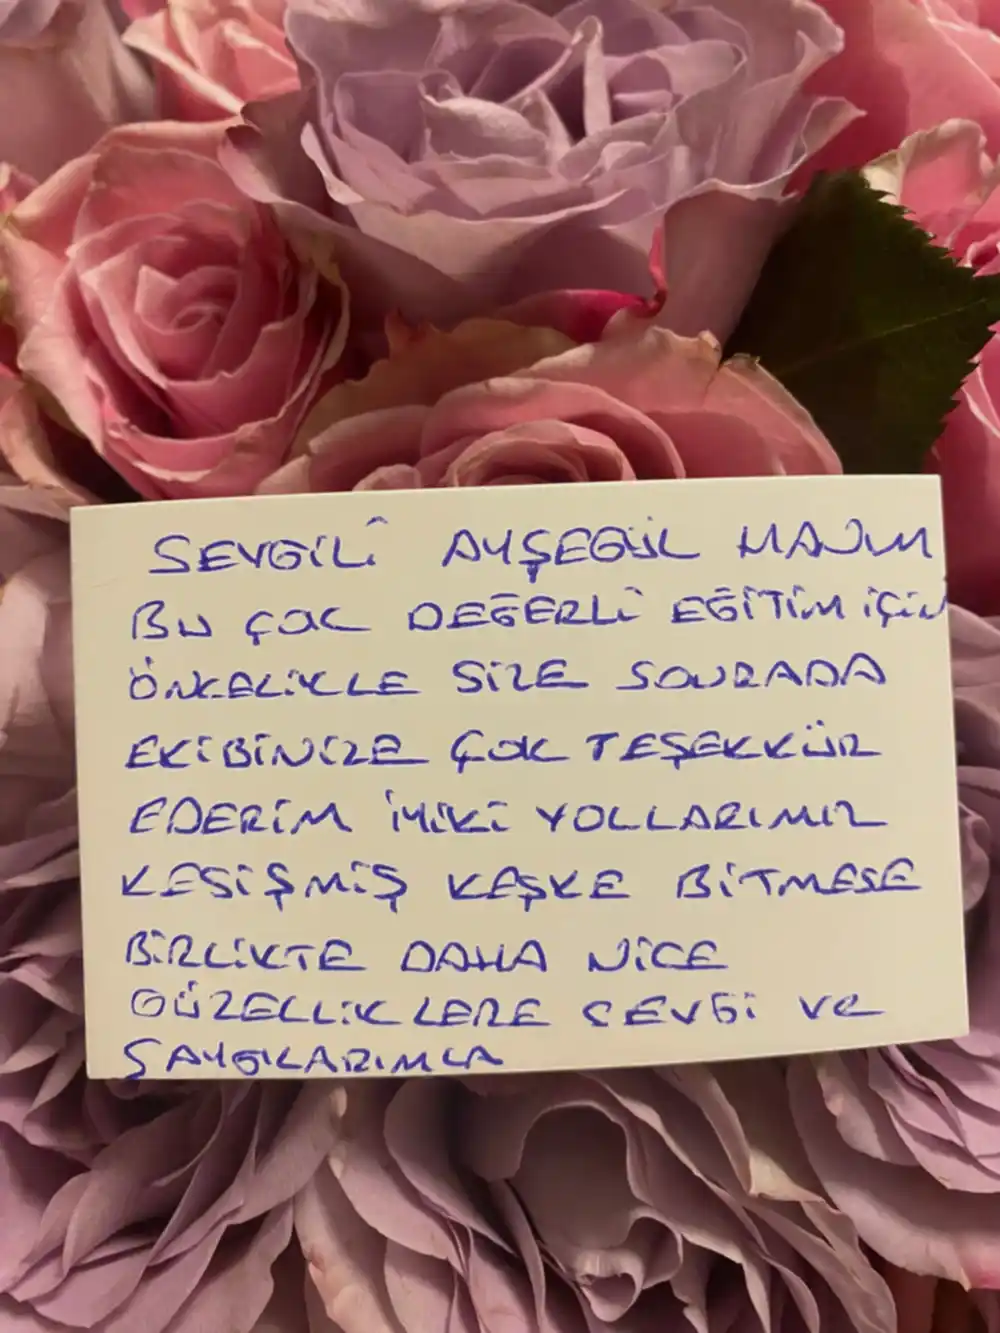 SEVGİLİ AYŞEGÜL HANIM
BU ÇOK DEĞERLİ EĞİTİM İÇİN
ÖNCELİKLE SİZE SONRADA
EKİBİNİZE ÇOK TEŞEKKÜR
EDERİM İYİKİ YOLLARIMIZ
KESİŞMİŞ KEŞKE BİTMESE
BİRLİKTE DAHA NİCE
GÜZELLİKLERE SEVGİ VE
SAYGILARIMLA